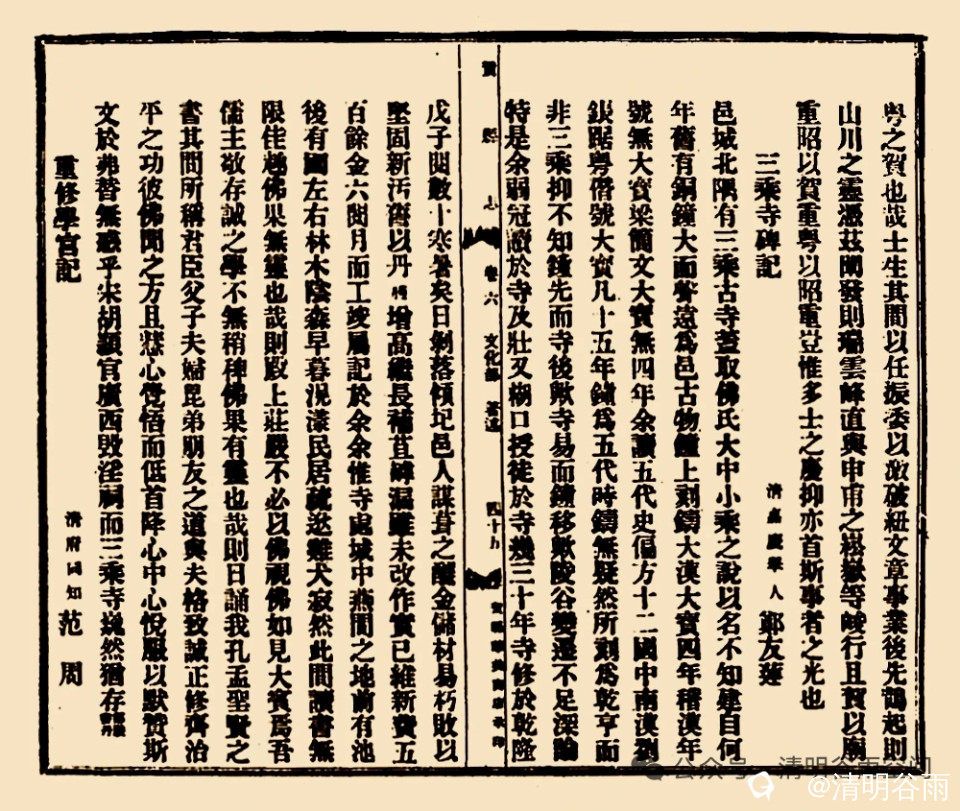 粤之賀也哉士生其間以任振委以激破紐文章事業後先鵲起則
山川之靈憑茲闡發則瑞雲峰直與申甫之崧嶽等峻行且賀以廟
重昭以賀重粤以昭重豈惟多士之慶抑亦首斯事者之光也
三乘寺碑記
清嘉慶舉人 鄒友蓮
邑城北隅有三乘古寺蓋取佛氏大中小乘之說以名不知建自何
年舊有銅鐘大而聲遠爲邑古物鐘上刻鑄大漢大寶四年稽漢年
號無大寶梁簡文大寶無四年余讀五代史偏方十二國中南漢劉
鋹踞粤僭號大寶凡十五年鑄爲五代時鑄無疑然所刻爲乾亨而
非三乘抑不知鐘先而寺後歟寺易而鐘移歟陵谷變遷不足深論
特是余弱冠讀於寺及壯又糊口授徒於寺幾三十年寺修於乾隆
賀縣志
卷六
文化部
著述
四十九
戊子閱數十寒暑矣日剝落傾圮邑人謀葺之醵金儲材易朽敗以
堅固新汚舊以丹 增高繼長補苴罅漏雖未改作實已維新費五
百餘金六閱月而工竣屬記於余余惟寺處城中燕閒之地前有池
後有園左右林木陰森早暮況濛民居疏逖雞犬寂然此間讀書無
限佳趣佛果無靈也哉則殿上莊嚴不必以佛視佛如見大賓爲吾
儒主敬存誠之學不無稍裨佛果有靈也哉則日誦我孔孟聖賢之
書其間所稱君臣父子夫婦昆弟朋友之道與夫格致誠正修齊治
平之功彼佛聞之方且悲心覺悟而低首降心中心悅服以默贊斯
文於弗替無憾乎宋胡頴官廣西毁淫祠而三乘寺巍然猶存
重修學宮記
清府同知 范周
公众号 清明谷雨间
@清明谷雨